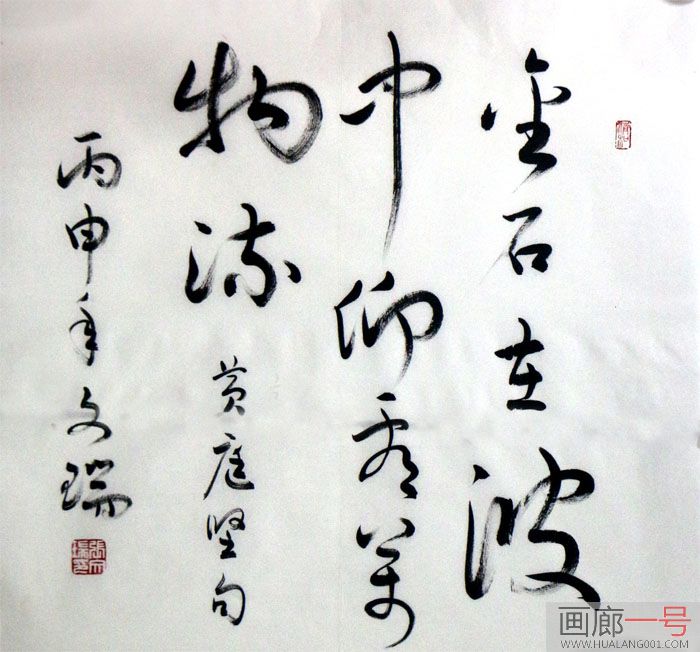 金石在波
中仰看万
物流
黄庭坚句
丙申年文瑞
画廊一号
WWW.HUALANG001.COM